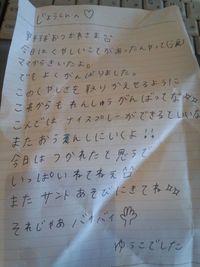 じょうくんへ♡
今日はくやしいことがあったんやって
ママからきいたよ。
でもよくがんばりました。
このくやしさを取りかえせるように
これからもれんしゅうがんばってな
こんどはナイスプレーができるといいな
またおう焉んしにいくよ!!
今日はつかれたと思うで
いっぱいねてねえ
またサンドあそびにきてね
それじゃあバイバイ
ゆうこでした